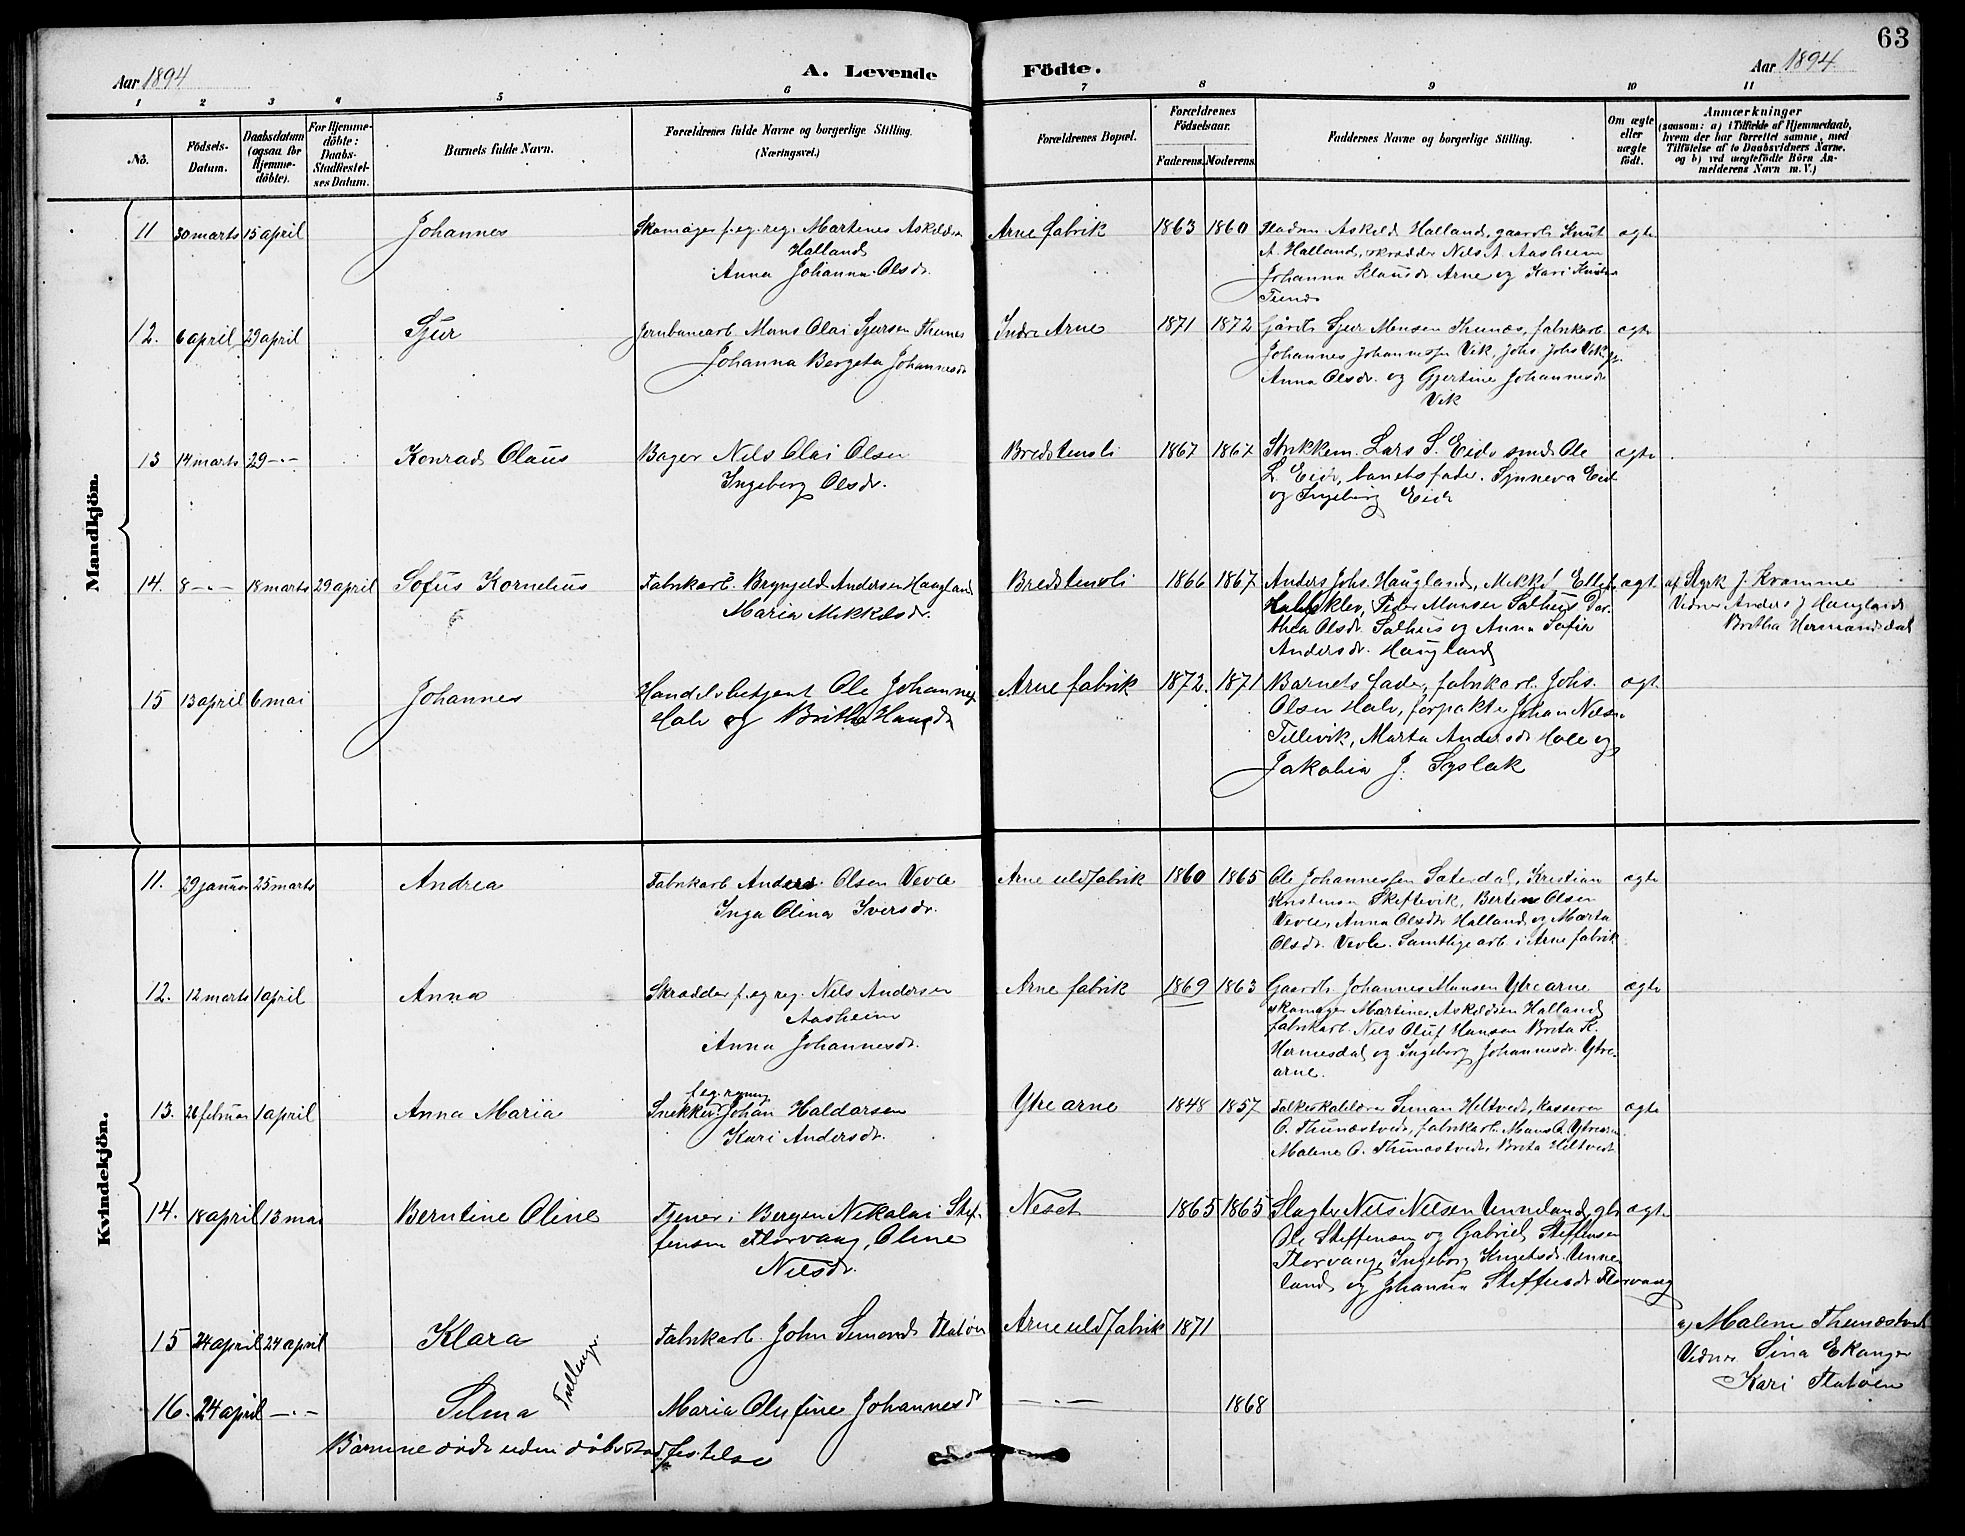 63
Aar 1894
A. Levende Födte.
Aar 1894
1 2 3 4 5 6 7 8 9 10 11
No.
Födsels-
Datum.
Daabsdatum
(ogsaa for
Hjemme-
döbte).
For Hjemme-
döbte:
Daabs-
Stadfæstel-
ses Datum.
Barnets fulde Navn.
Forældrenes fulde Navne og borgerlige Stilling.
(Næringsvei.)
Forældrenes Bopæl.
Forældrenes
Födselsaar.
Faderens. Moderens.
Faddernes Navne og borgerlige Stilling.
Om ægte
eller
uægte
födt.
Anmærkninger
(saasom: a) i Tilfælde af Hjemmedaab,
hvem der har forrettet samme, med
Tilföielse af to Daabsvidners Navne,
og b) ved uægtefödte Börn An-
melderens Navn m. V.)
Mandkjön.
11 30 marts 15 april Johannes
Skomager f. eg. reg. Martines Askeldsen
Halland
Anna Johanna Olsdr.
Arne fabrik 1863 1860
Askeld Halland, gaardb. Knut
A. Halland, skrædder Nils A. Aasheim
Johanna Klausdr Arne og Kari
ægte
12. 6 april 29 april Sjur
Jernbanearb. Mons Olai Sjursen Thunes
Johanna Bergeta Johannesdr
Indre Arne 1871 1872
Gårdb. Sjur Monsen Thunæs, fabrikarb.
Johannes Johannessen Vik, Johs Johs Vik
Anna Olsdr. og Gjertine Johannesdr
Vik
ægte
13 14 marts 29 -"- Konrad Olaus
Bager Nils Olai Olsen
Ingeborg Olsdr.
Bredstensli 1867 1867
Lars S. Eide smed Ole
L. Eide, barnets fader. Synneva Eide
og Ingeborg Eide
ægte
14. 8 -"- 18 marts 29 april Sofus Kornelius
Fabrikarb. Brynjeld Andersen Haugland
Maria Mikkelsdr.
Bredstensli 1866 1867
Anders Johs. Haugland, Mikkel
Peder Monsen Salhus Dor-
thea Olsdr. Salhus og Anna Sofia
Andersdr. Haugland
ægte
af Styrk J. Kvamme
Vidner Anders J Haugland
Britha Hermandsdal
15 13 april 6 mai Johannes
Handelsbetjent Ole Johannes
Hole og Britha Hansdr
Arne fabrik 1872. 1871
Barnets fader, fabrikarb. Johs.
Olsen Hole, forpakter Johan Nilsen
Tellevik, Marta Andersdr Hole og
Jakobia J. Syslak
ægt.
Kvindekjön.
11. 29 januar 25 marts Andrea
Fabrikarb Anders Olsen Vevle
Inga Olina Iversdr.
Arne uldfabrik 1860 1865
Ole Johannessen Sæterdal, Kristian
Kristensen Skiftevik, Bertin Olsen
Vevle, Anna Olsdtr Halland og Marta
Olsdr. Vevle. Samtlige arb. i Arne fabrik
ægte
12. 12 marts 1 april Anna
Skrædder f. eg reg. Nils Andersen
Aasheim
Anna Johannesdr.
Arne fabrik 1869 1863
Gaardb. Johannes Monsen Ytrearne
skomager Martines Askeldsen Halland
fabrikarb. Nils Oluf Hansen Brita K.
Hermesdal og Ingeborg Johannesdr. Ytre-
arne.
ægte
13. 26 februar 1 april Anna Maria
f. eg. regning
Snekker Johan Haldorsen
Kari Andersdr.
Ytre arne 1848 1857
Folkeskolelærer Simon Hiltvedt, kasserer
O. Thunæstvedt, fabrikarb. Mons O. Ytrearne
Malene O. Thunæstvedt, Brita Hiltvedt
ægte
14. 18 april 13 mai Berntine Oline
Tjener i Bergen Nikolai Stef-
fensen Florvaag, Oline
Nilsdr.
Neset 1865 1865
Slagter Nils Nilsen Unneland, gb
Ole Steffensen og Gabriel Steffensen
Florvaag, Ingeborg Knutsdr. Unne-
land og Johanna Steffensdr Florvaag
ægte
15 24 april 24 april Klara
Fabrikarb. John Simonds Flatøen
Arne uldfabrik 1871
a) Malene Thunæstvedt
Vidner Sina Ekanger
Kari Flatøen
Tvillinger
16. 24 april -"- Selma
Maria Olufine Johannesdr
-"- 1868
Børnene døde uden dåbsstadfestelse